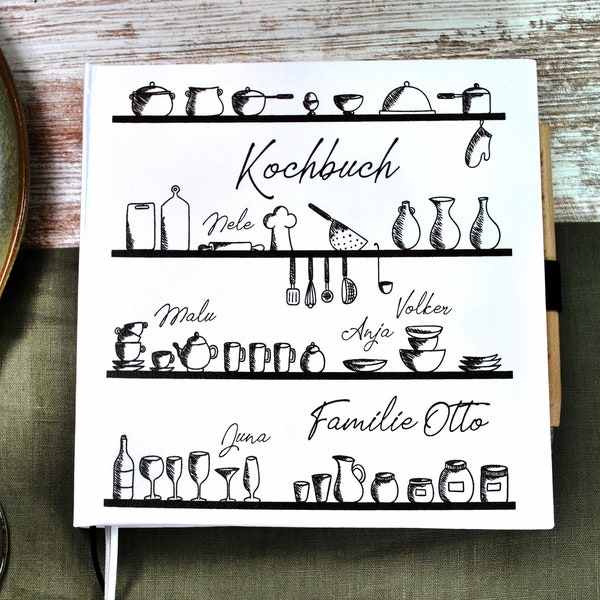 Kochbuch
Nele
Malu
Volker
Anja
Familie Otto
Juna